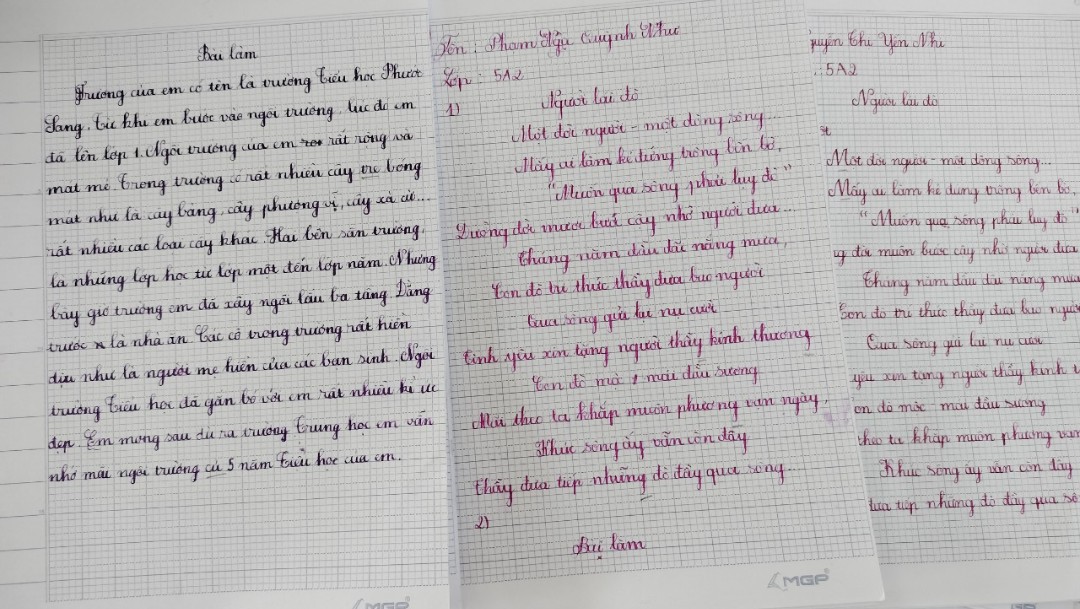 Bài làm
Trường của em có tên là trường Tiểu học Phước
Sang. Từ khi em bước vào ngôi trường, lúc đó em
đã lên lớp 1. Ngôi trường của em rất rộng và
mát mẻ. Trong trường có rất nhiều cây tre bóng
mát như là cây bàng, cây phượng vĩ, cây xà cừ...
rất nhiều các loại cây khác. Hai bên sân trường,
là những lớp học từ lớp một đến lớp năm. Nhưng
bây giờ trường em đã xây ngôi lầu ba tầng. Đằng
trước là nhà ăn. Các cô trong trường rất hiền
dịu như là người mẹ hiền của các bạn sinh. Ngôi
trường Tiểu học đã gắn bó với em rất nhiều kí ức
đẹp. Em mong sau dù ra trường Trung học em vẫn
nhớ mãi ngôi trường cũ 5 năm Tiểu học của em.
MGP
Tên : Phạm Quỳnh Như
Lớp : 5A2
1)
Người lái đò
Một đời người - một dòng sông...
Mấy ai làm kẻ đứng trông bến bờ,
"Muốn qua sông phải lụy đò"
Đường đời muôn bước cậy nhờ người đưa...
Tháng năm dầu dãi nắng mưa,
Con đò tri thức thầy đưa bao người
Qua sông gửi lại nụ cười
Tình yêu xin tặng người thầy kính thương
Con đò mộc 1 mái đầu sương
Mãi theo ta khắp muôn phương vạn ngày,
Khúc sông ấy vẫn còn đây
Thầy đưa tiếp những đò đầy qua sông...
2)
Bài làm
MGP
guyễn Thị Yến Nhi
: 5A2
Người lái đò
Một đời người - một dòng sông...
Mấy ai làm kẻ đứng trông bến bờ,
"Muốn qua sông phải lụy đò"
g đời muôn bước cậy nhờ người đưa
Tháng năm dầu dãi nắng mưa
Con đò tri thức thầy đưa bao người
Qua sông gửi lại nụ cười
yêu xin tặng người thầy kính t
on đò mộc mái đầu sương
theo ta khắp muôn phương vạn
Khúc sông ấy vẫn còn đây
đưa tiếp những đò đầy qua sô